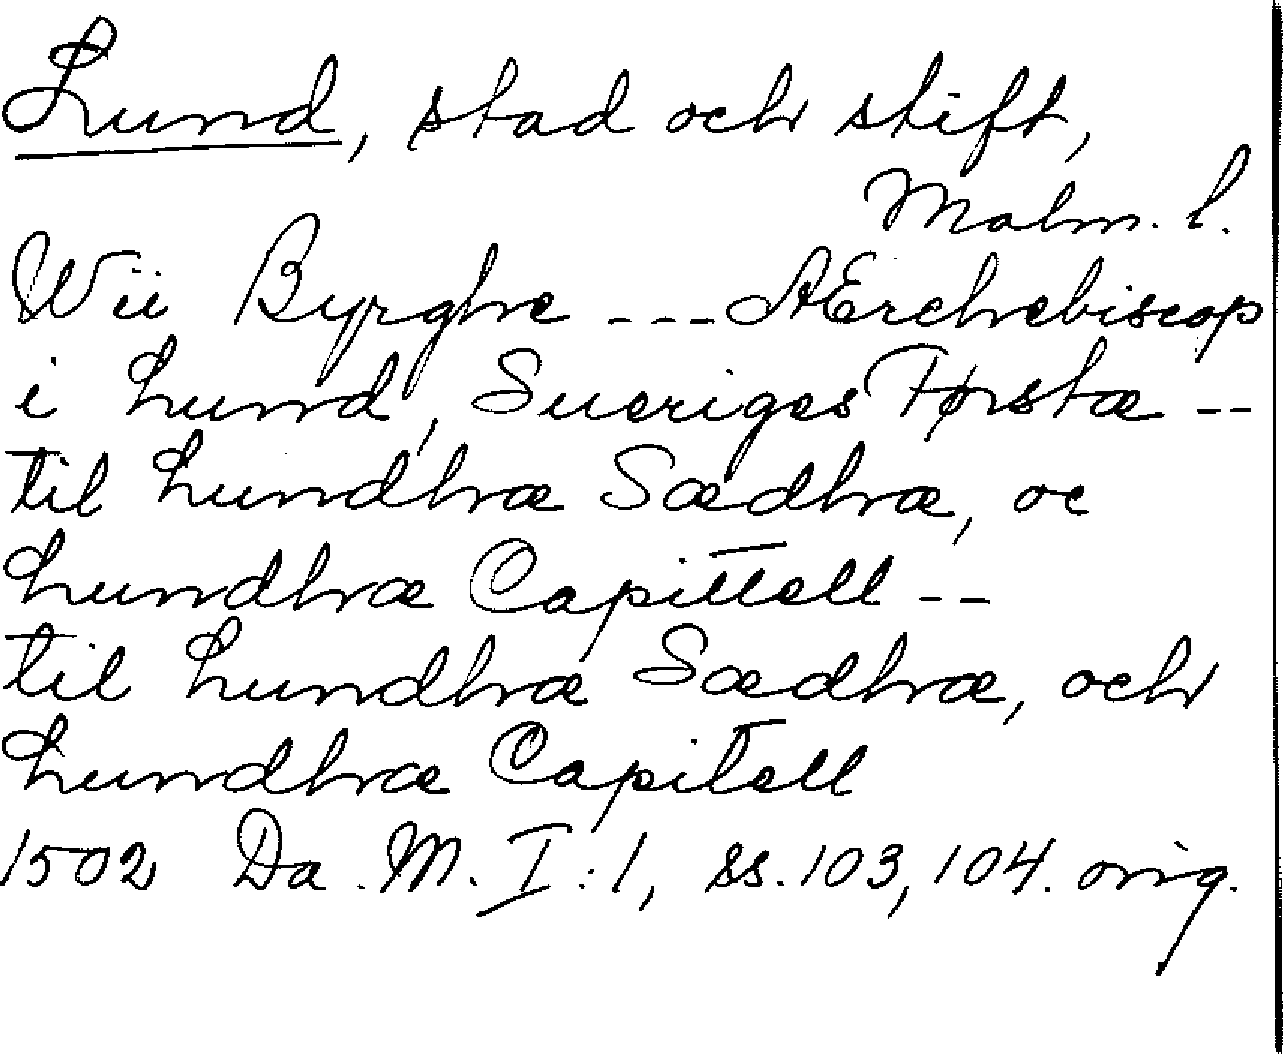 Lund, stad och stift,
Malm. l.
Wii Byrghe --- AErchebiscop
i Lund, Sueriges Førstæ --
til Lundhæ Sædhæ, oc
Lundhæ Capittell --
til Lundhæ Sædhæ, och
Lundhæ Capitell
1502 Da. M. I:1, ss. 103, 104. orig.